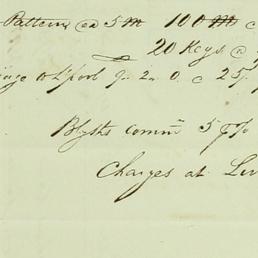 Pattern ea 5M 100M
20 Kegs @
to L'pool 9. 2. 0. @ 25/.
Blyths commn 5 p%
Charges at Liv